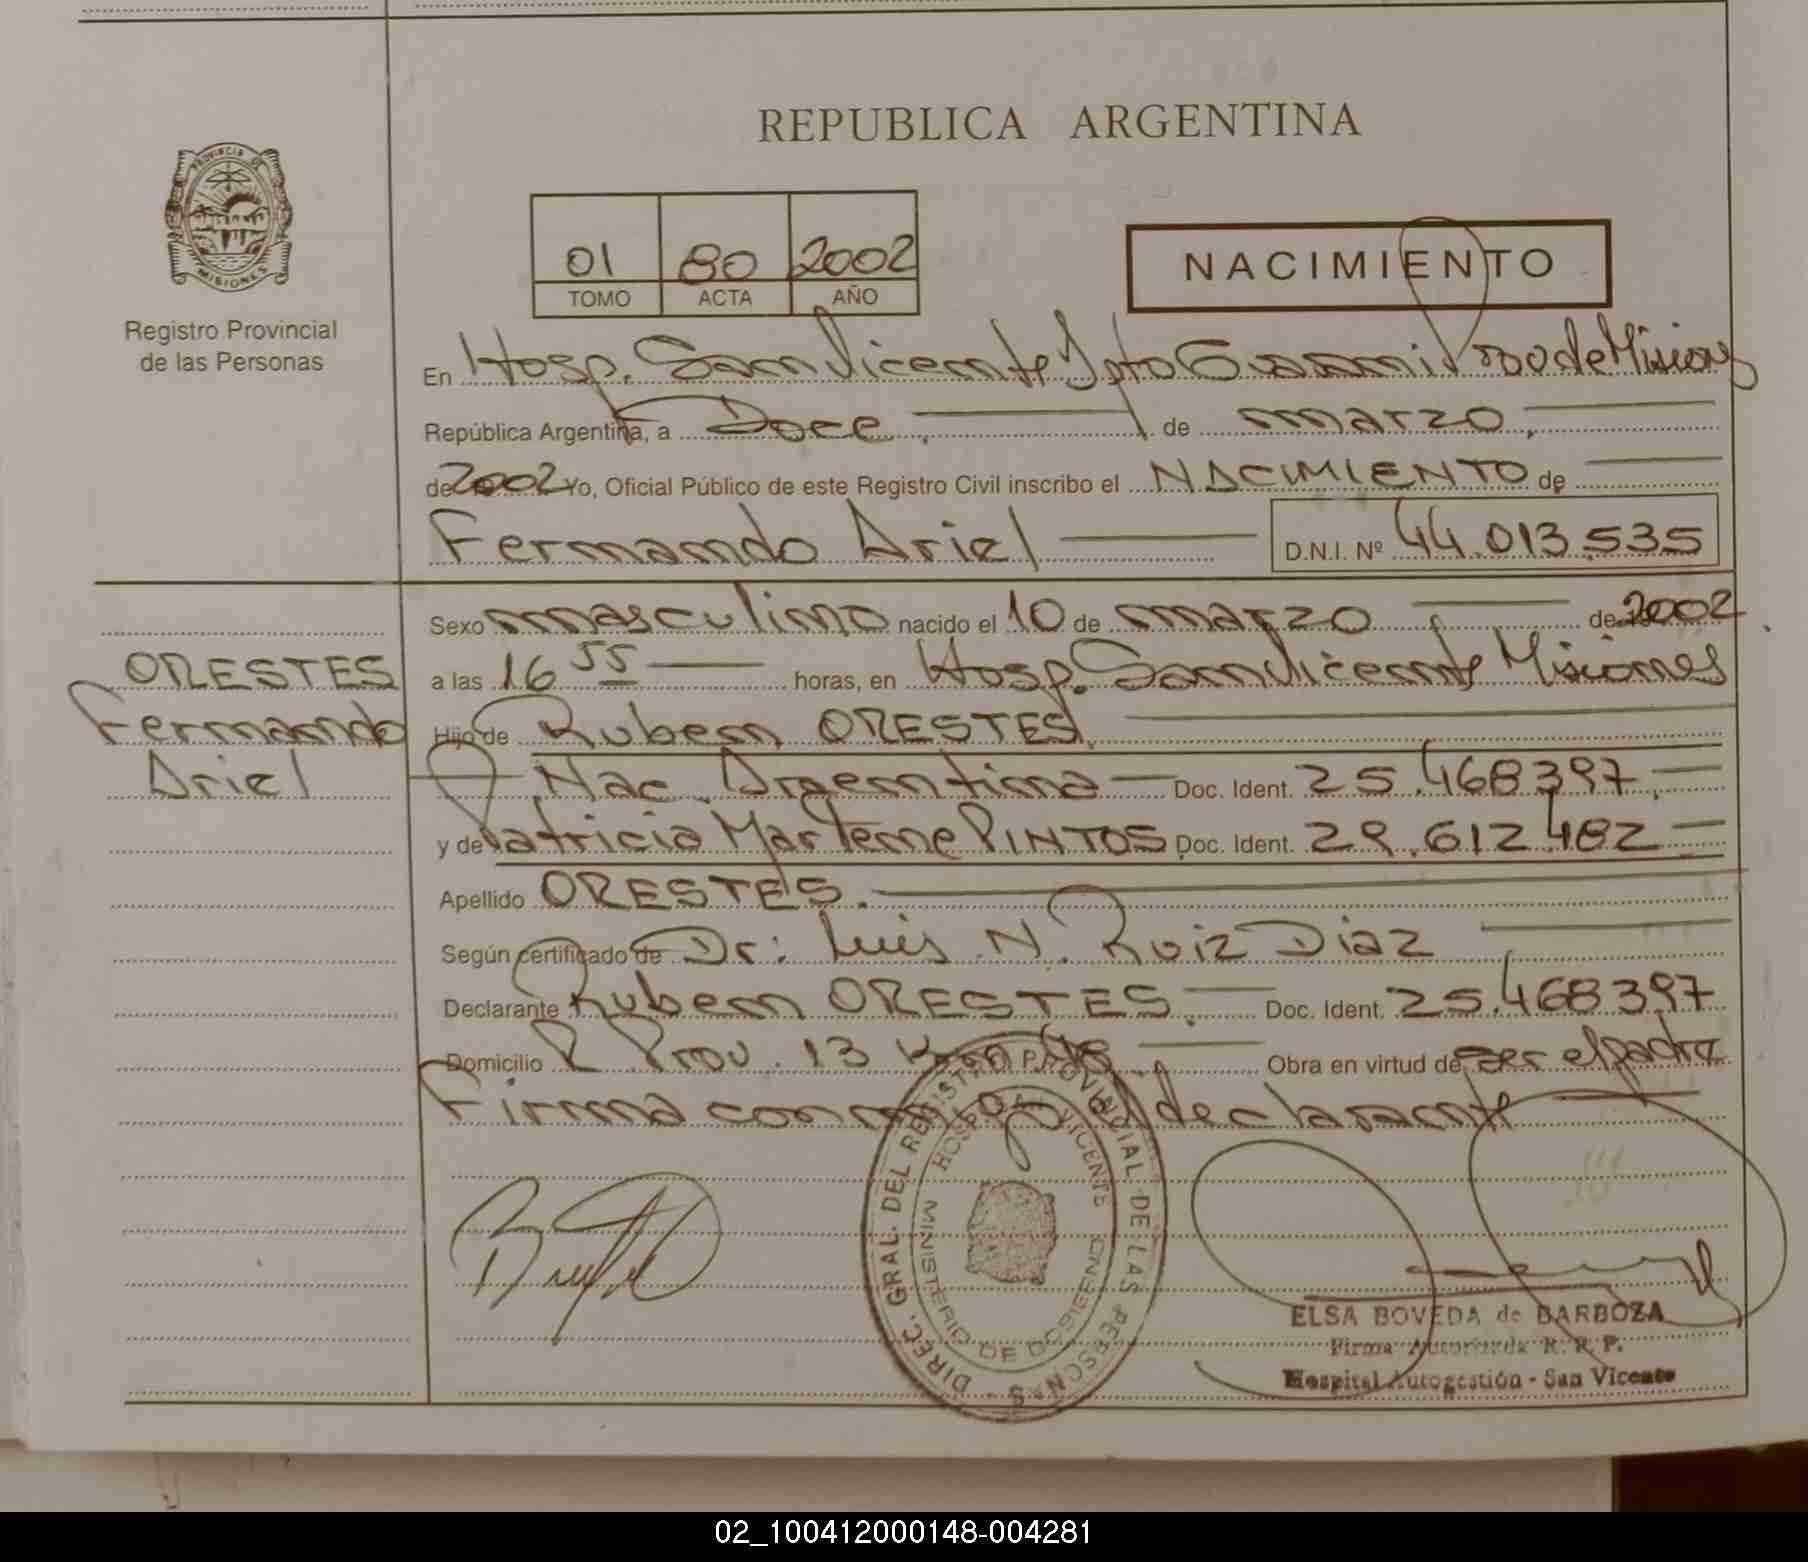 REPUBLICA ARGENTINA
PROVINCIA DE MISIONES
Registro Provincial
de las Personas
01 80 2002
TOMO ACTA AÑO
NACIMIENTO
En Hosp. San Vicente Dpto Guaraní Prov de Misiones
República Argentina, a Doce de marzo,
de 2002 Yo, Oficial Público de este Registro Civil inscribo el NACIMIENTO de
Fernando Ariel D.N.I. Nº 44.013.535
ORESTES
Fernando
Ariel
Sexo masculino nacido el 10 de marzo de 2002
a las 16 55 horas, en Hosp. San Vicente Misiones
Hijo de Ruben ORESTES.
Nac. Argentina Doc. Ident. 25.468397.
y de Patricia Marlene PINTOS Doc. Ident. 29.612482
Apellido ORESTES.
Según certificado de Dr: Luis N. Ruiz Diaz
Declarante Ruben ORESTES. Doc. Ident. 25.468397
Domicilio R. Prov. 13 Obra en virtud de ser el padre
Firma conmigo el declarante
DIREC. GRAL. DEL REGISTRO PROVINCIAL DE LAS PERSONAS
HOSPITAL VICENTE
MINISTERIO DE GOBIERNO
ELSA BOVEDA de BARBOZA
Firma Autorizada R. R. P.
Hospital Autogestión - San Vicente
02_100412000148-004281